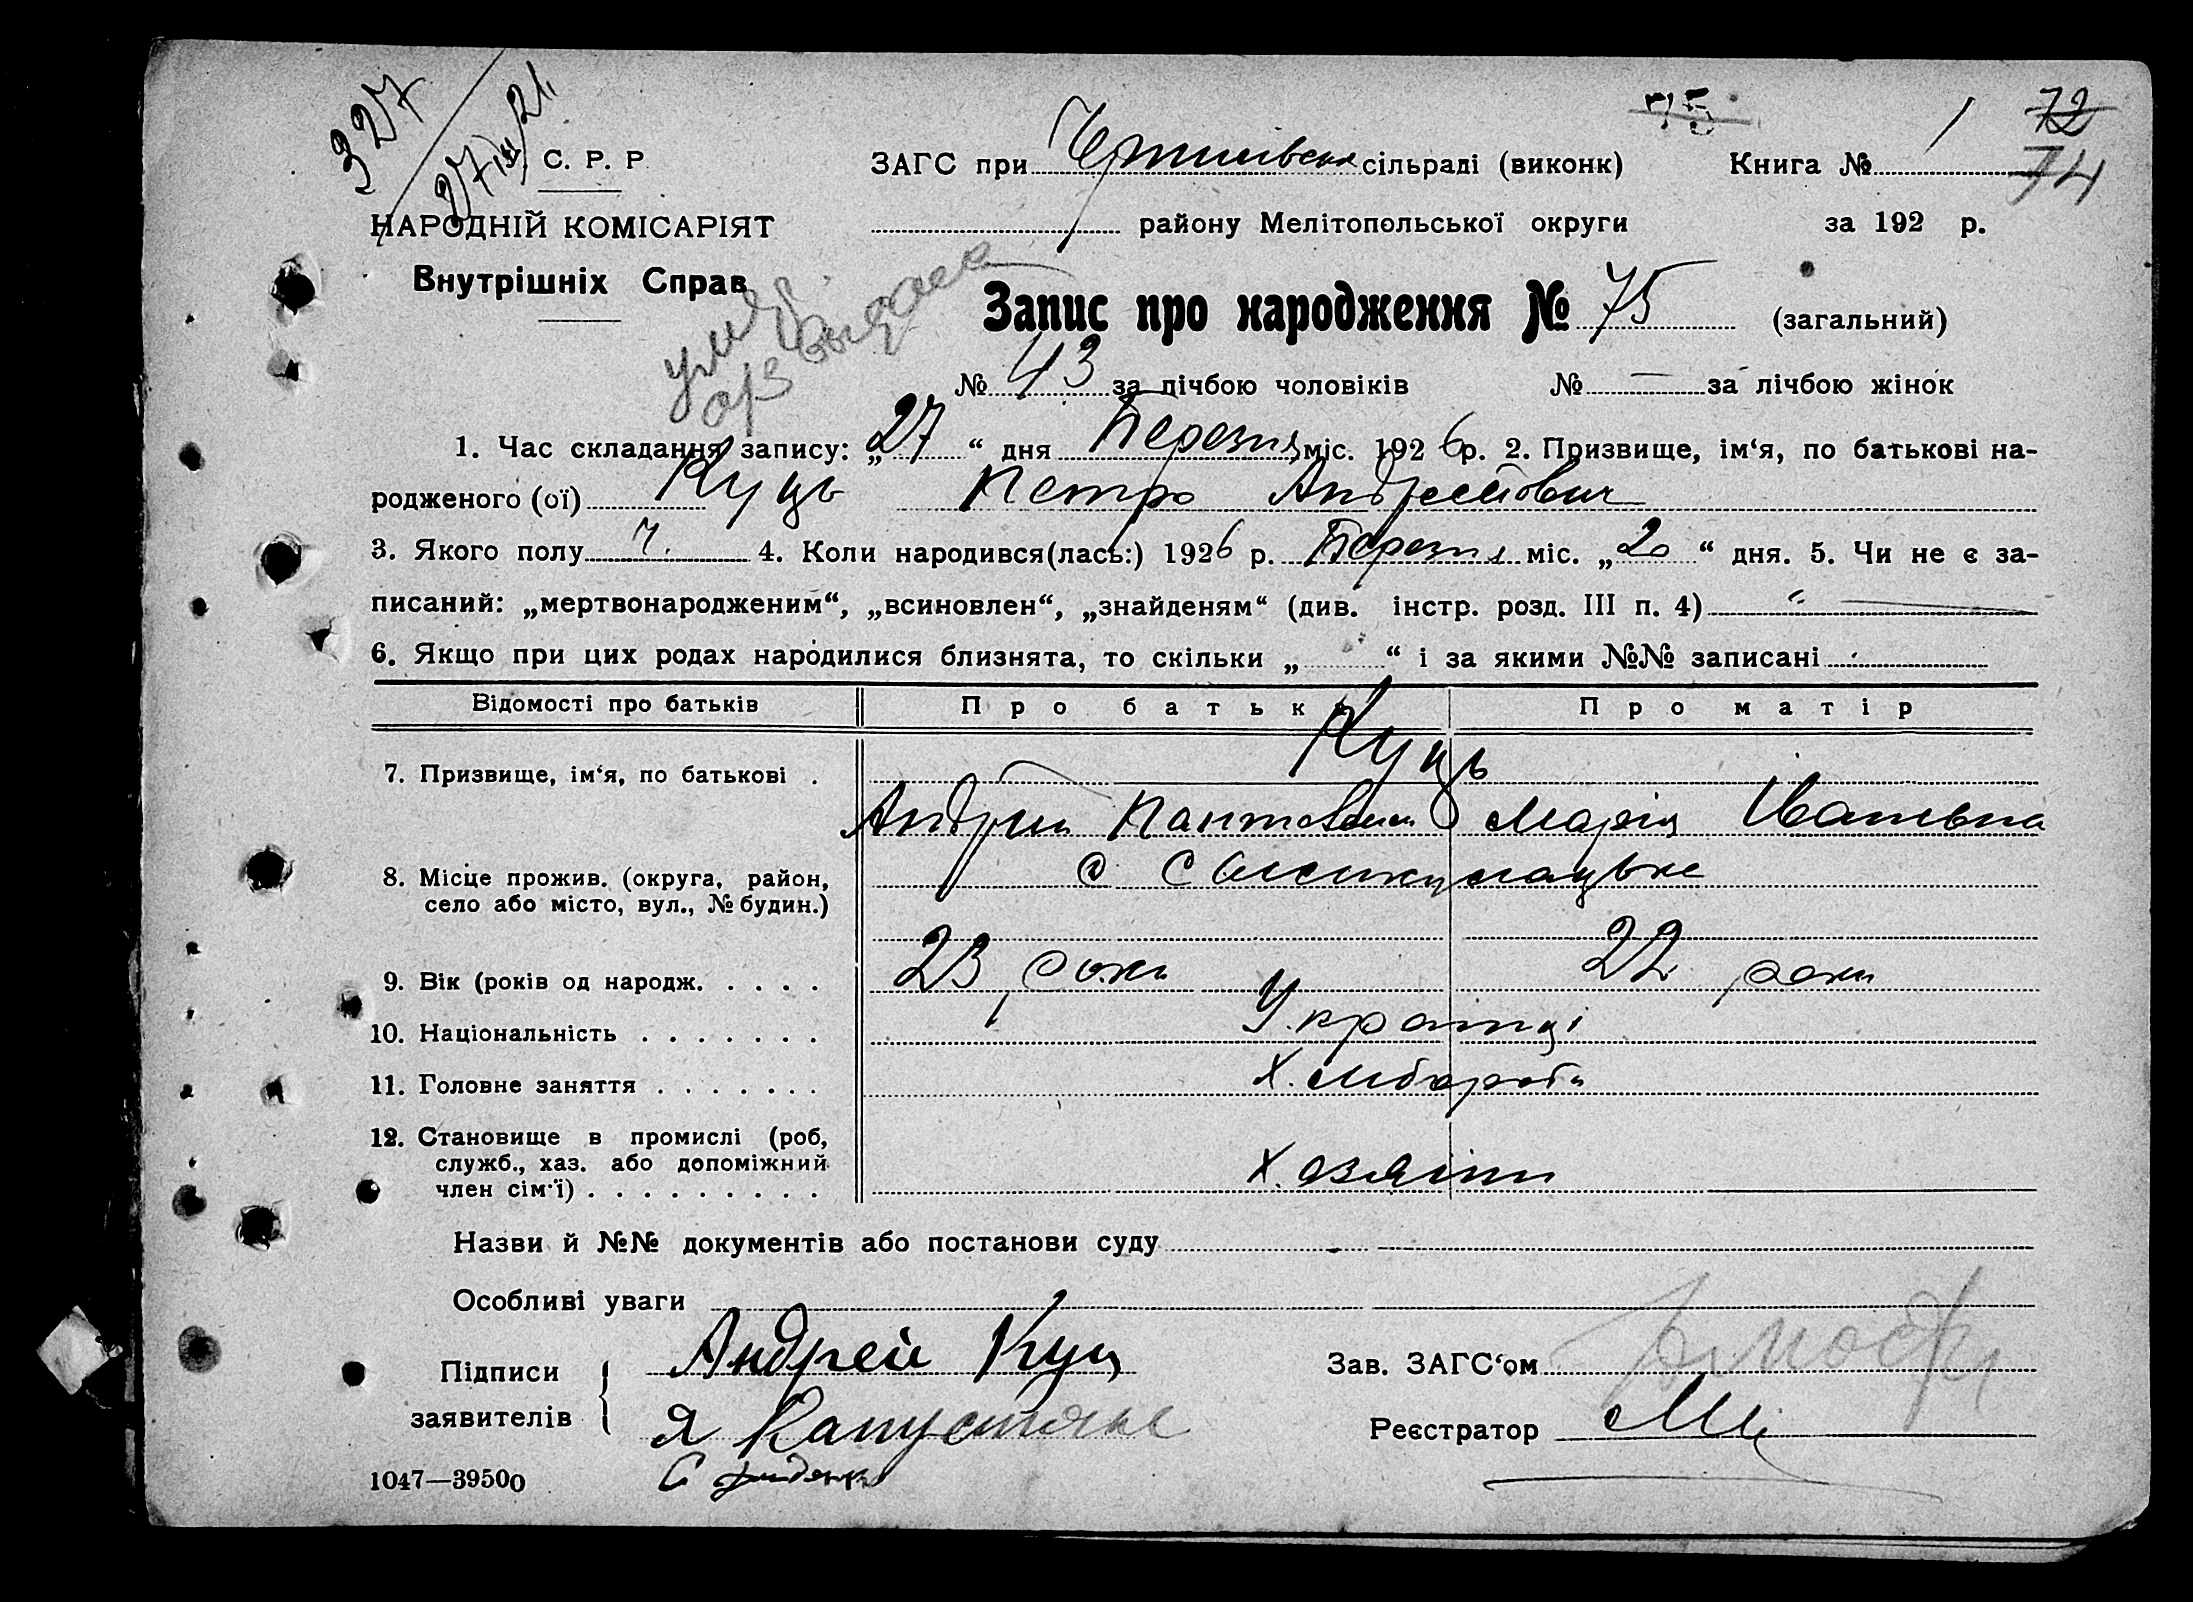 327
27/III 26
75
72
74
С. Р. Р
ЗАГС при сільраді (виконк) Книга № 1
НАРОДНІЙ КОМІСАРІЯТ
району Мелітопольської округи за 192 р.
Внутрішніх Справ
Запис про народження № 75 (загальний)
№ 43 за лічбою чоловіків № — за лічбою жінок
1. Час складання запису: „27“ дня Березня міс. 1926 р. 2. Призвище, ім‘я, по батькові на-
родженого (ої) Куць Петро Андреєвич
3. Якого полу ч. 4. Коли народився(лась:) 1926 р. Березня міс. „20“ дня. 5. Чи не є за-
писаний: „мертвонародженим“, „всиновлен“, „знайденям“ (див. інстр. розд. III п. 4) —
6. Якщо при цих родах народилися близнята, то скільки „ “ і за якими №№ записані
Відомості про батьків Про батька Про матір
7. Призвище, ім‘я, по батькові . Куць
Андрій Марія Іванівна
8. Місце прожив. (округа, район,
село або місто, вул., № будин.)
9. Вік (років од народж. . . . . 23 роки 22 роки
10. Національність . . . . . . . Українці
11. Головне заняття . . . . . . . Хлібороби
12. Становище в промислі (роб,
служб., хаз. або допоміжний
член сім‘ї) . . . . . . . . . Хазяіни
Назви й №№ документів або постанови суду
Особливі уваги
Підписи
заявителів
Андрей Куц
Я
Зав. ЗАГС‘ом
Реєстратор
1047—39500